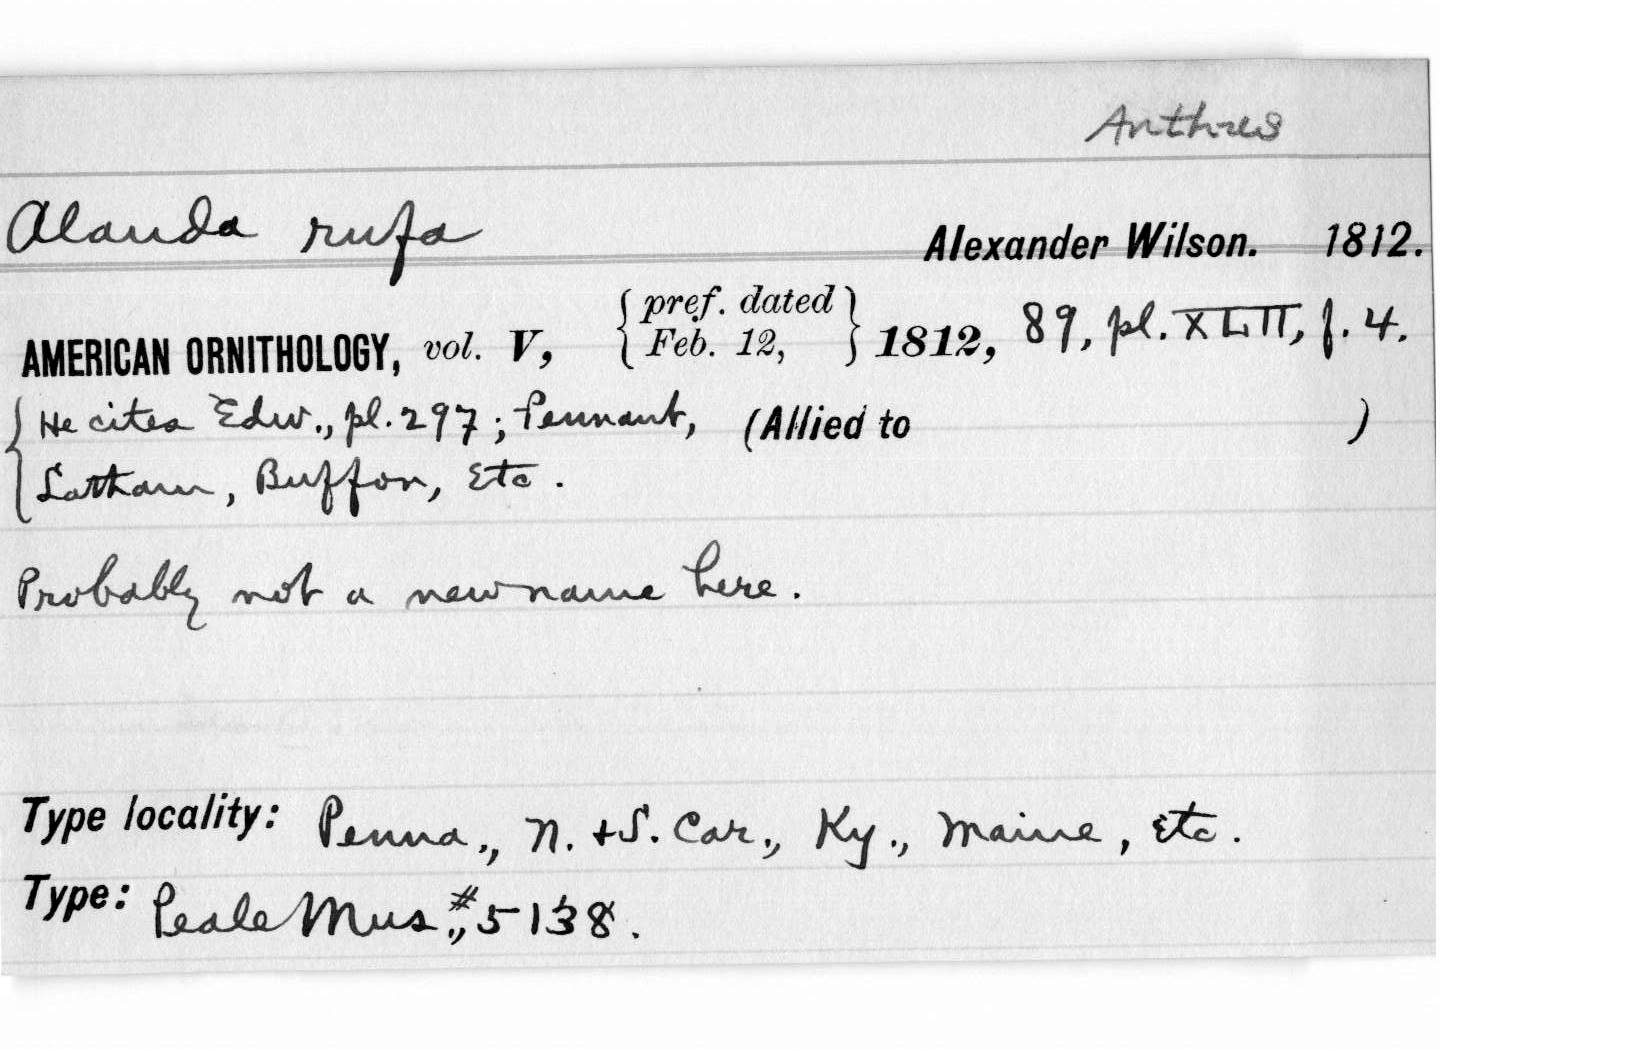 Anthus
Alauda rufa Alexander Wilson. 1812.
AMERICAN ORNITHOLOGY, vol. V, { pref. dated Feb. 12, } 1812, 89, pl. XLII, f. 4.
{ He cites Edw., pl. 297; Pennant, (Allied to )
Latham, Buffon, Etc.
Probably not a new name here.
Type locality: Penna., N. + S. Car., Ky., Maine, Etc.
Type: Peale Mus., #5138.